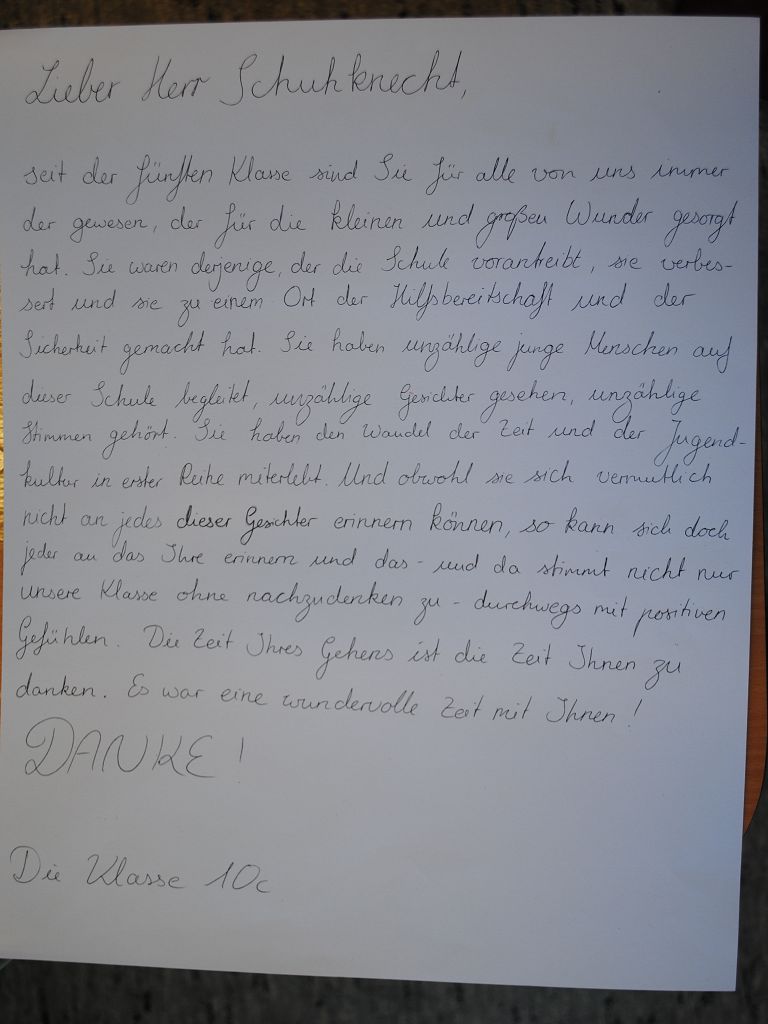 Lieber Herr Schuhknecht,
seit der fünften Klasse sind Sie für alle von uns immer
der gewesen, der für die kleinen und großen Wunder gesorgt
hat. Sie waren derjenige, der die Schule vorantreibt, sie verbes-
sert und sie zu einem Ort der Hilfsbereitschaft und der
Sicherheit gemacht hat. Sie haben unzählige junge Menschen auf
dieser Schule begleitet, unzählige Gesichter gesehen, unzählige
Stimmen gehört. Sie haben den Wandel der Zeit und der Jugend-
kultur in erster Reihe miterlebt. Und obwohl sie sich vermutlich
nicht an jedes dieser Gesichter erinnern können, so kann sich doch
jeder an das Ihre erinnern und das - und da stimmt nicht nur
unsere Klasse ohne nachzudenken zu - durchwegs mit positiven
Gefühlen. Die Zeit Ihres Gehens ist die Zeit Ihnen zu
danken. Es war eine wundervolle Zeit mit Ihnen!
DANKE!
Die Klasse 10c